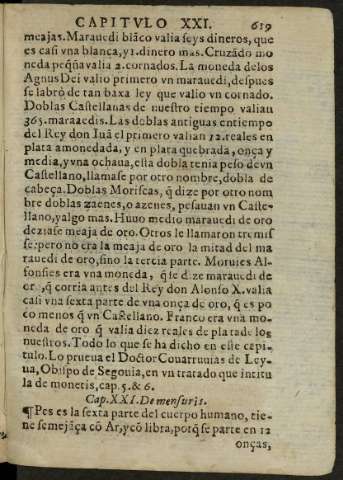 CAPITVLO XXI. 619
meajas. Marauedi blãco valia seys dineros, que
es casi vna blanca, y 1. dinero mas. Cruzado mo
neda peq̃ña valia 2. cornados. La moneda delos
Agnus Dei valio primero vn marauedi, despues
se labrò de tan baxa ley que valio vn cornado.
Doblas Castellanas de nuestro tiempo valian
365. marauedis. Las doblas antiguas en tiempo
del Rey don Iuã el primero valian 12. reales en
plata amonedada, y en plata quebrada, onça y
media, y vna ochaua, esta dobla tenia peso de vn
Castellano, llamase por otro nombre, dobla de
cabeça. Doblas Moriscas, q̃ dize por otro nom
bre doblas zaenes, o azenes, pesauan vn Caste-
llano, y algo mas. Huuo medio marauedi de oro
deziase meaja de oro. Otros le llamaron tremis
se: pero no era la meaja de oro la mitad del ma
rauedi de oro, sino la tercia parte. Moruies Al-
fonsies era vna moneda, q̃ se dize marauedi de
oro, q̃ corria antes del Rey don Alonso X. valia
casi vna sexta parte de vna onça de oro, q̃ es po
co menos q̃ vn Castellano. Franco era vna mo-
neda de oro q̃ valia diez reales de plata de los
nuestros. Todo lo que se ha dicho en este capi-
tulo. Lo prueua el Doctor Couarruuias de Ley-
ua, Obispo de Segouia, en vn tratado que intitu
la de monetis, cap. 5. & 6.
Cap. XXI. De mensuris.
¶ Pes es la sexta parte del cuerpo humano, tie-
ne semejãça cõ Ar, y cõ libra, porq̃ se parte en 12
onças,